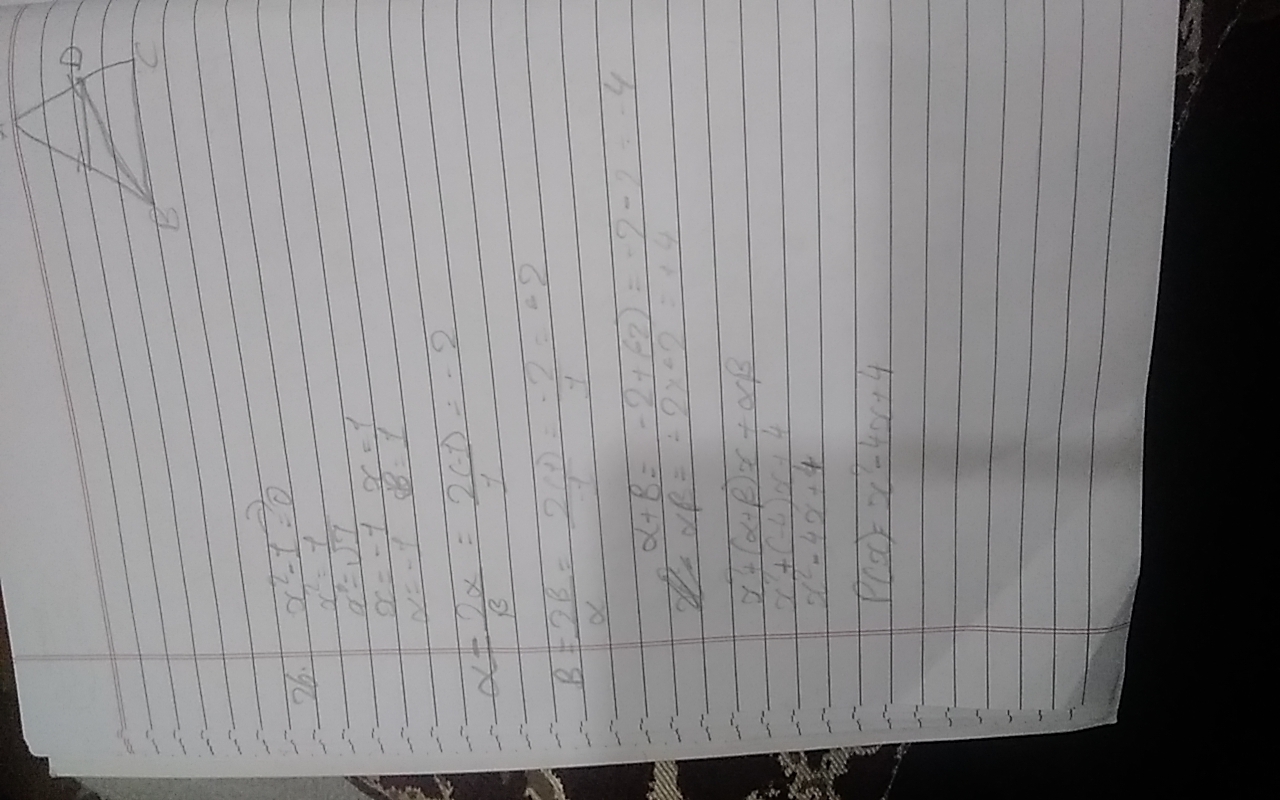 A
D
B
C
26. x² - 1 = 0
x² = 1
x = √1
x = -1 x = 1
α = -1 β = 1
α = 2α/β = 2(-1)/1 = -2
β = 2β/α = 2(1)/-1 = -2/1 = -2
α + β = -2 + (-2) = -2 - 2 = -4
αβ = -2 × -2 = +4
x² + (α+β)x + αβ
x² + (-4)x + 4
x² - 4x + 4
P(x) = x² - 4x + 4